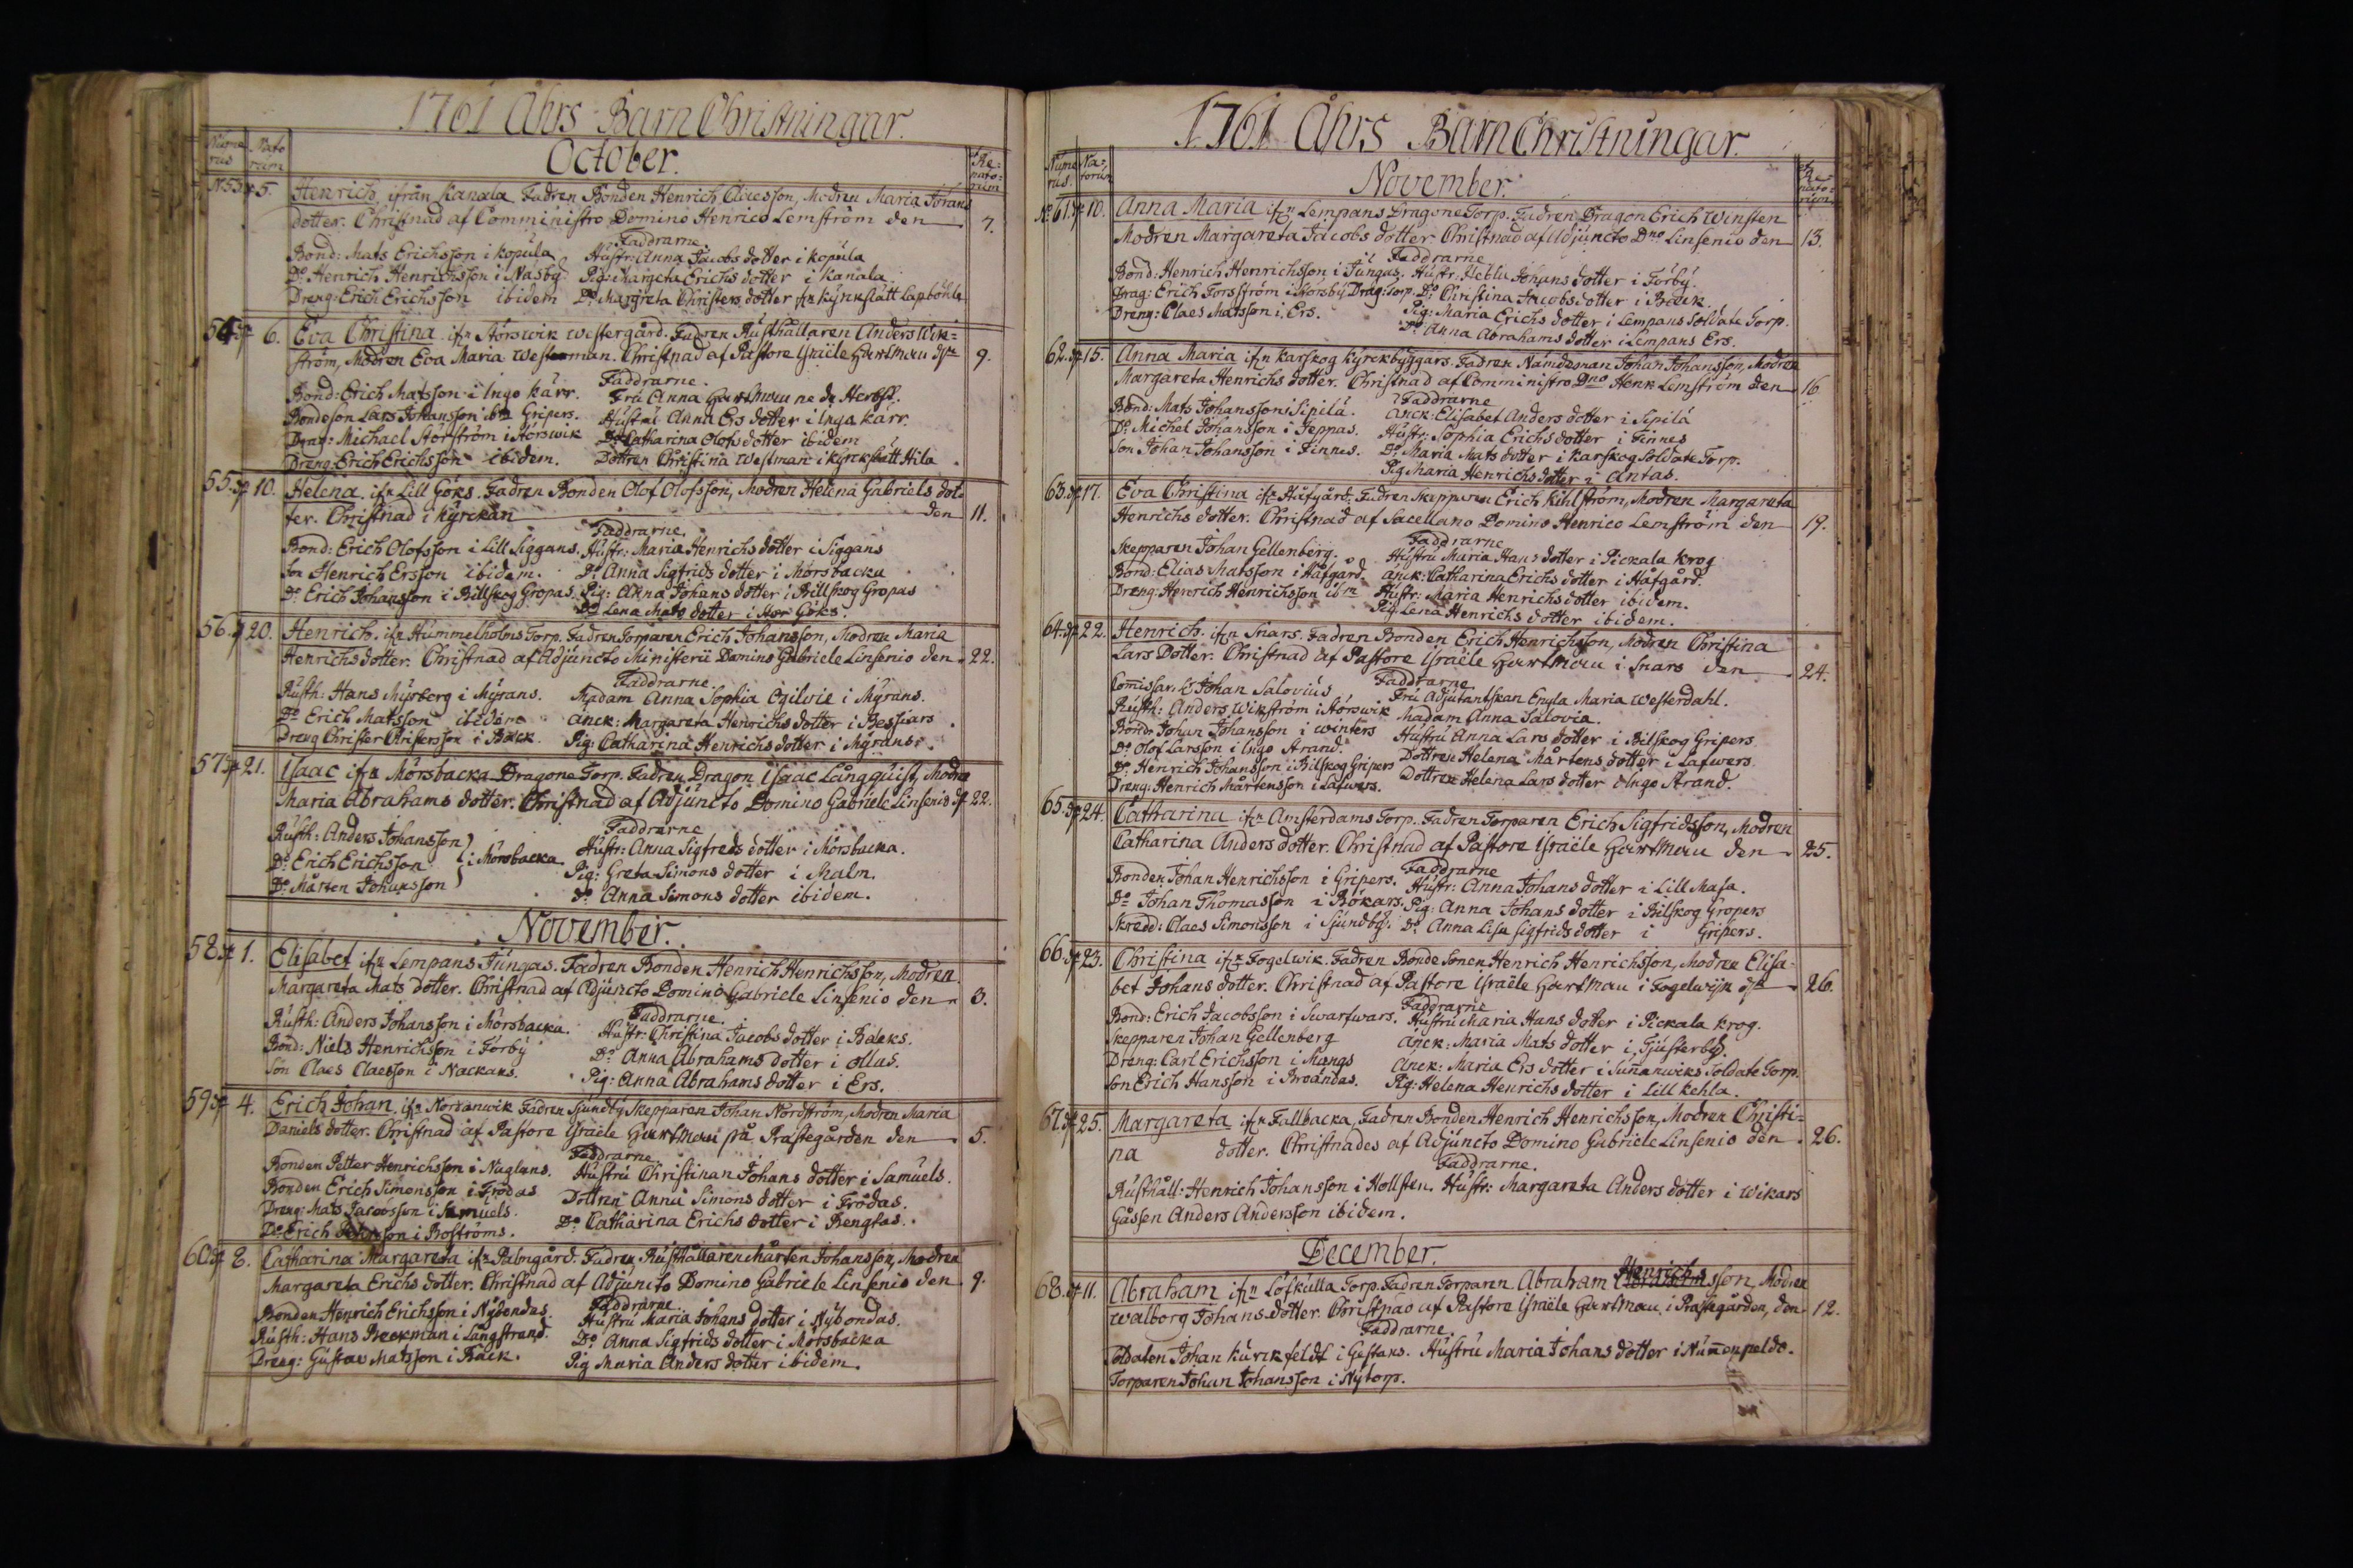 1761 Åhrs Barn Christningar.
Nume rus Nato rum October. Re= nato= rum
N:53. 5. Henrich, ifrån Kanala Fadren Bonden Henrich Claesson, Modren Maria Jörans
dotter. Christnad af Comministro Domino Henrico Lemström den 7.
Faddrarne
Bond: Mats Erichsson i Kopula Hustr: Anna Jacobs dotter i Kopula
Do Henrich Henrichsson i Näsby Pig: Margeta Erichs dotter i Kanala
Dreng: Erich Erichsson ibidem Do Margreta Christers dotter ifrn Kyrkslätt Lapböhle
54. 6. Eva Christina ifrn Störswik Westergård. Fadren Rusthållaren Anders Wik=
ström, Modren Eva Maria Westerman. Christnad af Pastore Israële Hartman dn 9.
Faddrarne.
Bond: Erich Matsson i Ingo Kärr. Fru Anna Hartman
Bondeson Lars Johansson ibm Gripers. Hustru Anna Ers dotter i Inga Kärr.
Drag: Michael Störström i Störswik Do Catharina Olofs dotter ibidem
Dreng: Erich Erichsson ibidem. Dottren Christina Westman i Kyrckslätt Hila
55. 10. Helena. ifrn Lill Göks. Fadren Bonden Olof Olofsson, Modren Helena Gabriels dot
ter. Christnad i Kyrckan den 11.
Faddrarne.
Bond: Erich Olofsson i Lill Siggans. Hustr: Maria Henrichs dotter i Siggans
son Henrich Ersson ibidem. Do Anna Sigfrids dotter i Mörsbacka
Do Erich Johansson i Billskog Gropas. Pig: Anna Johans dotter i Billskog Gropas
Do Lena Mats dotter i Stor Göks.
56. 20. Henrich. ifrn Hummelholms Torp. Fadren Torparen Erich Johansson, Modren Maria
Henrichs dotter. Christnad af Adjuncto Ministerii Domino Gabriele Linsenio den 22.
Faddrarne.
Rusth: Hans Myrberg i Myrans. Madam Anna Sophia Ogilvie i Myrans.
Do Erich Matsson ibidem Änck: Margareta Henrichs dotter i Bessiars.
Dreng Christer Christersson i Bäck. Pig: Catharina Henrichs dotter i Myrans.
57. 21. Isaac ifrn Mörsbacka Dragone Torp. Fadren Dragon Isaac Långquist, Modren
Maria Abrahams dotter. Christnad af Adjuncto Domino Gabriele Linsenio d 22.
Faddrarne
Rusth: Anders Johansson Hustr: Anna Sigfreds dotter i Mörsbacka.
Do Erich Erichsson i Mörsbacka Pig: Greta Simons dotter i Malm.
Do Mårten Johansson Do Anna Simons dotter ibidem.
November.
58. 1. Elisabet ifrn Lempans Jungas. Fadren Bonden Henrich Henrichsson, Modren
Margareta Mats dotter. Christnad af Adjuncto Domino Gabriele Linsenio den 3.
Faddrarne.
Rusth: Anders Johansson i Mörsbacka. Hustr: Christina Jacobs dotter i Bäcks.
Bond: Niels Henrichsson i Förby Do Anna Abrahams dotter i Ollas.
Son Claes Claesson i Nackans. Pig: Anna Abrahams dotter i Ers.
59. 4. Erich Johan, ifrn Norranwik Fadren Sjundby Skepparen Johan Nordström, Modren Maria
Daniels dotter. Christnad af Pastore Israële Hartman på Prästegården den 5.
Faddrarne.
Bonden Petter Henrichsson i Naglans. Hustru Christinan Johans dotter i Samuels.
Bonden Erich Simonsson i Frödas Dottren Anna Simons dotter i Frödas.
Dreng: Mats Jacobsson i Samuels. Do Catharina Erichs dotter i Bengtas.
Do Erich Petersson i Boströms.
60. 8. Catharina Margareta ifrn Palmgård. Fadren Rusthållaren Mårten Johansson, Modren
Margareta Erichs dotter. Christnad af Adjuncto Domino Gabriele Linsenio den 9.
Faddrarne
Bonden Henrich Erichsson i Nybondas. Hustru Maria Johans dotter i Nybondas.
Rusth: Hans Beckman i Långstrand. Do Anna Sigfrids dotter i Mörsbacka
Dreng: Gustav Matsson i Bäck. Pig Maria Anders dotter ibidem.
1761 Åhrs Barn Christningar.
Nume rus. Na= torum November. Re= nato= rum
No 61. 10. Anna Maria ifrn Lempans Dragone Torp. Fadren Dragon Erich Winsten
Modren Margareta Jacobs dotter. Christnad af Adjuncto Dno Linsenio den 13.
Faddrarne
Bond: Henrich Henrichsson i Jungas. Hustr: Heblu Johans dotter i Förby.
Drag: Erich Forsström i Störsby Drag: Torp. Do Christina Jacobs dotter i Bäck.
Dreng: Claes Matsson i Ers. Pig: Maria Erichs dotter i Lempans Soldate Torp.
Do Anna Abrahams dotter i Lempans Ers.
62. 15. Anna Maria ifrn Karskog Kyrckbyggars. Fadren Nämdeman Johan Johansson, Modren
Margareta Henrichs dotter. Christnad af Comministro Dno Henr Lemström den 16
Faddrarne
Bond: Mats Johansson i Sipilä. Änck: Elisabet Anders dotter i Sipilä
Do Michel Johansson i Jeppas. Hustr: Sophia Erichs dotter i Finnes
Son Johan Johansson i Finnes. Do Maria Mats dotter i Karskog Soldate Torp.
Pig Maria Henrichs dotter i Antas.
63. 17. Eva Christina ifrn Håfgård. Fadren Skepparen Erich Kihlström, Modren Margareta
Henrichs dotter. Christnad af Sacellano Domino Henrico Lemström den 19.
Faddrarne
Skepparen Johan Gellenberg. Hustru Maria Hans dotter i Pickala Krog
Bond: Elias Matsson i Håfgård. Änck: Catharina Erichs dotter i Håfgård.
Dreng: Henrich Henrichsson ibm Hustr: Maria Henrichs dotter ibidem.
Pig: Lena Henrichs dotter ibidem.
64. 22. Henrich. ifrn Snars. Fadren Bonden Erich Henrichsson, Modren Christina
Lars Dotter. Christnad af Pastore Israële Hartman i Snars den 24.
Faddrarne
Comissar. Johan Salovius Fru Adjutantskan Engla Maria Westerdahl.
Rusth: Anders Wikström i Störswik Madam Anna Salovia.
Bond: Johan Johansson i Winters Hustru Anna Lars dotter i Bilskog Gripers
Do Olof Larsson i Ingo Strand. Dottren Helena Mårtens dotter i Lafwers
Do Henrich Johansson i Bilskog Gripers Dottren Helena Lars dotter i Ingo Strand.
Dreng: Henrich Mårtensson i Lafwers.
65. 24. Catharina ifrn Amsterdams Torp. Fadren Torparen Erich Sigfridsson, Modren
Catharina Anders dotter. Christnad af Pastore Israële Hartman den 25.
Faddrarne
Bonden Johan Henrichsson i Gripers. Hustr: Anna Johans dotter i Lill Masa.
Do Johan Thomasson i Bökars. Pig: Anna Johans dotter i Bilskog Gropers
Skredd: Claes Simonsson i Sjundby. Do Anna Lisa Sigfrids dotter i Gripers.
66. 23. Christina ifrn Fogelwik. Fadren Bonde Sonen Henrich Henrichsson, Modren Elisa=
bet Johans dotter. Christnad af Pastore Israële Hartman i Fogelwijk dn 26.
Faddrarne
Bond: Erich Jacobsson i Swartwars. Hustru Maria Hans dotter i Pickala Krog.
Skepparen Johan Gellenberg Änck: Maria Mats dotter i Tjusterby.
Dreng: Carl Erichsson i Mangs Änck: Maria Ers dotter i Sunnanwiks Soldate Torp.
Son Erich Hansson i Broändas. Pig: Helena Henrichs dotter i Lill Kehla.
67. 25. Margareta ifrn Fallbacka, Fadren Bonden Henrich Henrichsson, Modren Christi=
na dotter. Christnades af Adjuncto Domino Gabriele Linsenio den 26.
Faddrarne.
Rusthåll: Henrich Johansson i Hollsten. Hustr: Margareta Anders dotter i Wikars
Gåssen Anders Andersson ibidem.
December.
Henrichs
68. 11. Abraham ifrn Löfkulla Torp. Fadren Torparen Abraham Abrahamsson, Modren
Walborg Johans dotter. Christnad af Pastore Israële Hartman i Prästegården, den 12.
Faddrarne.
Soldaten Johan Kurckfeldt i Gestans. Hustru Maria Johans dotter i Nummenpeldo.
Torparen Johan Johansson i Nytorp.